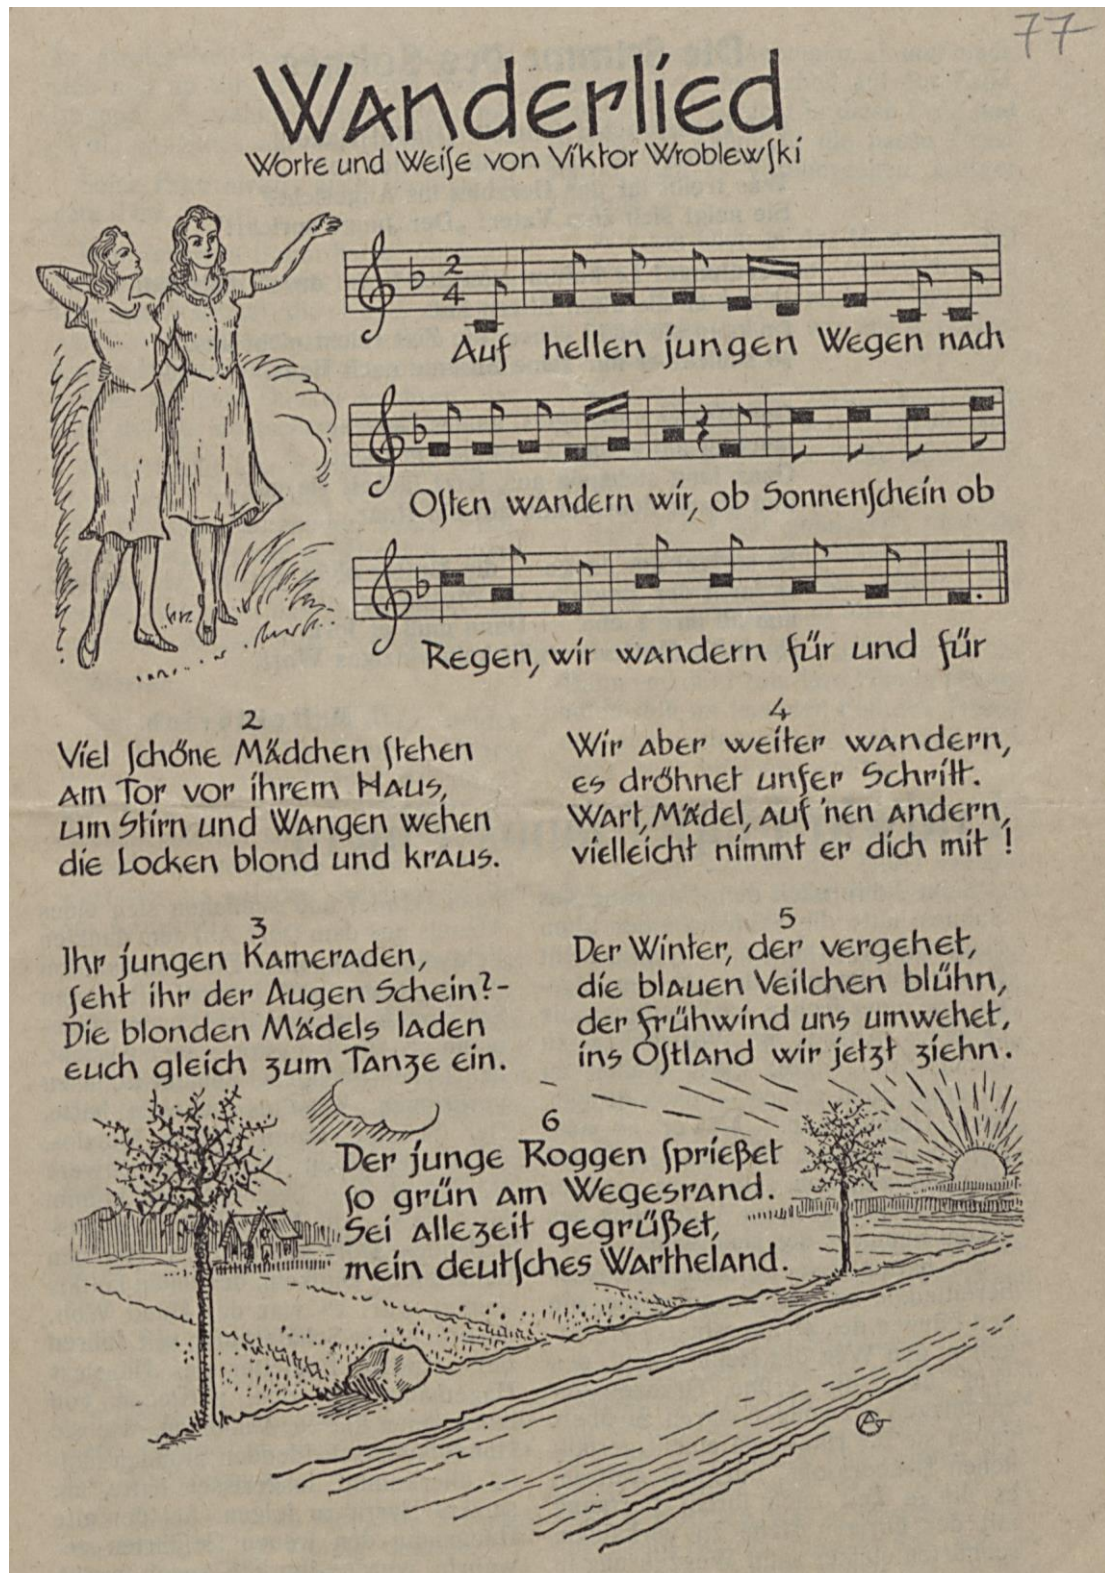 77
Wanderlied
Worte und Weiſe von Viktor Wroblewſki
2
4
Auf hellen jungen Wegen nach
Oſten wandern wir, ob Sonnenſchein ob
Regen, wir wandern für und für
2
Viel ſchöne Mädchen ſtehen
am Tor vor ihrem Haus,
um Stirn und Wangen wehen
die Locken blond und kraus.
3
Ihr jungen Kameraden,
ſeht ihr der Augen Schein?-
Die blonden Mädels laden
euch gleich zum Tanze ein.
4
Wir aber weiter wandern,
es dröhnet unſer Schritt.
Wart, Mädel, auf 'nen andern,
vielleicht nimmt er dich mit!
5
Der Winter, der vergehet,
die blauen Veilchen blühn,
der Frühwind uns umwehet,
ins Oſtland wir jetzt ziehn.
6
Der junge Roggen ſprießet
ſo grün am Wegesrand.
Sei allezeit gegrüßet,
mein deutſches Wartheland.